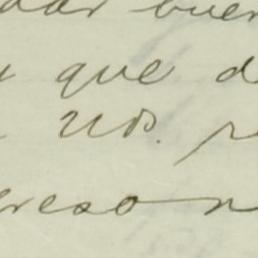 dar buen
y que d
Uds. re
reso n